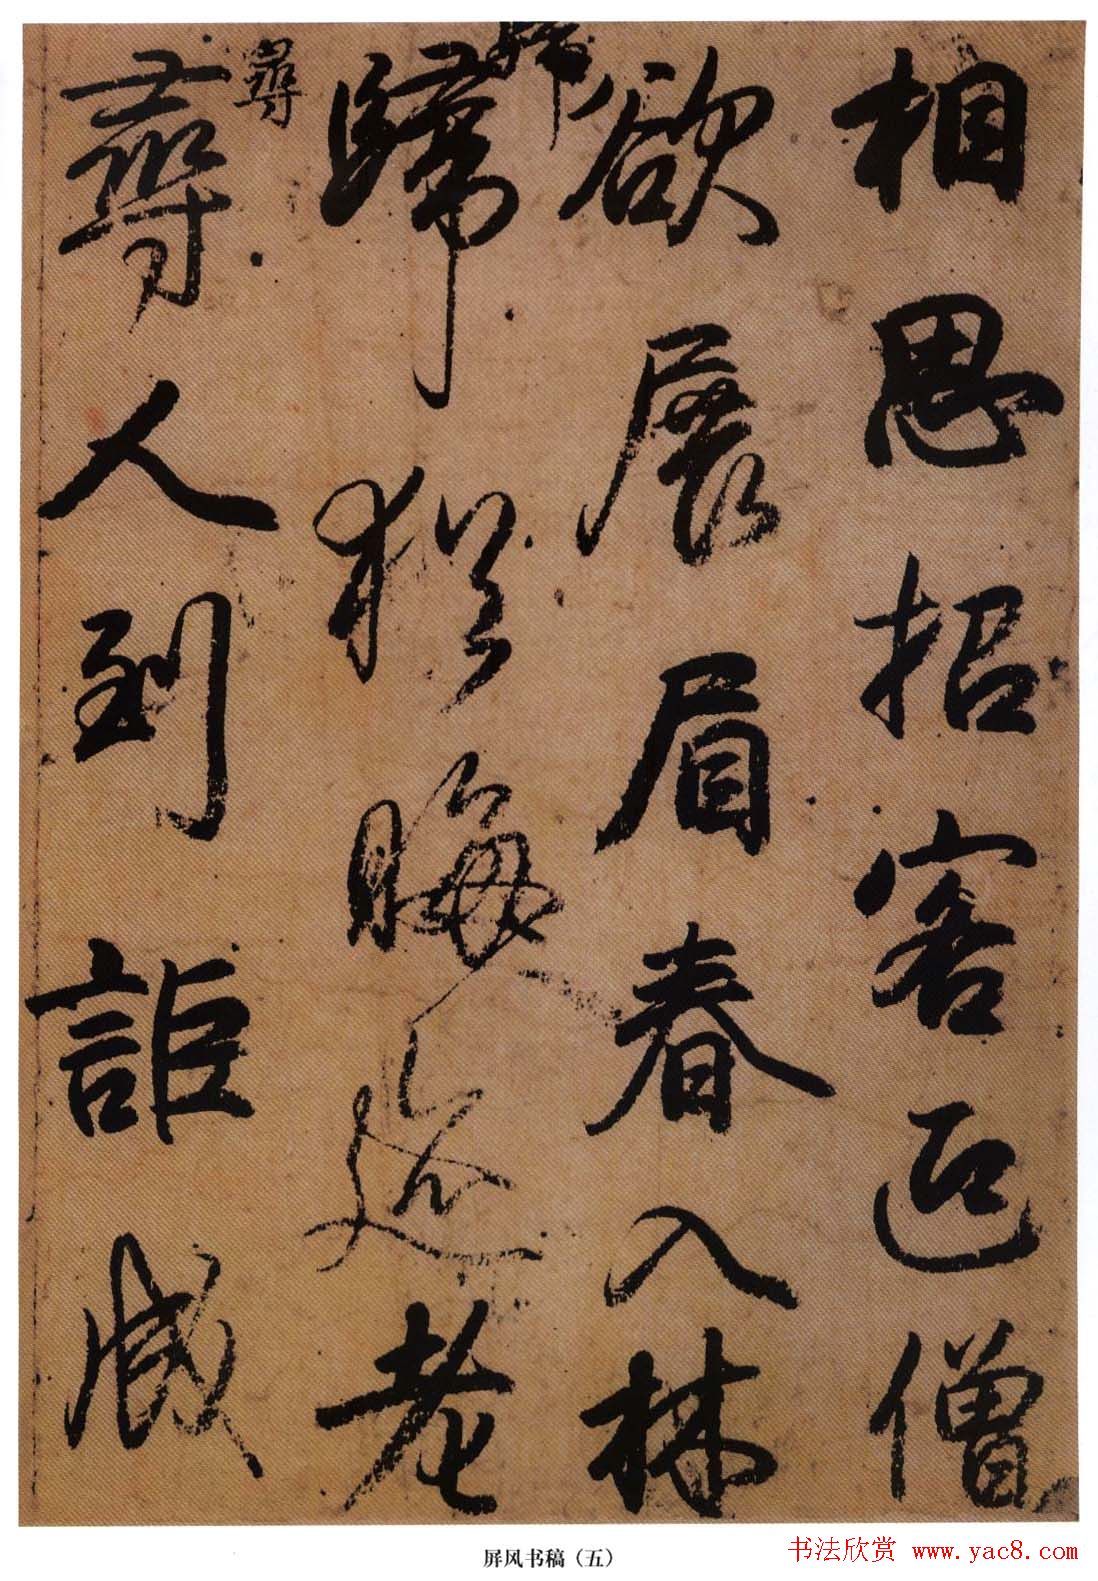 相思招客迎僧
欲展眉春入林
歸
歸猶晦迹老
尋
尋人到詎成
屏风书稿（五）
书法欣赏 www.yac8.com